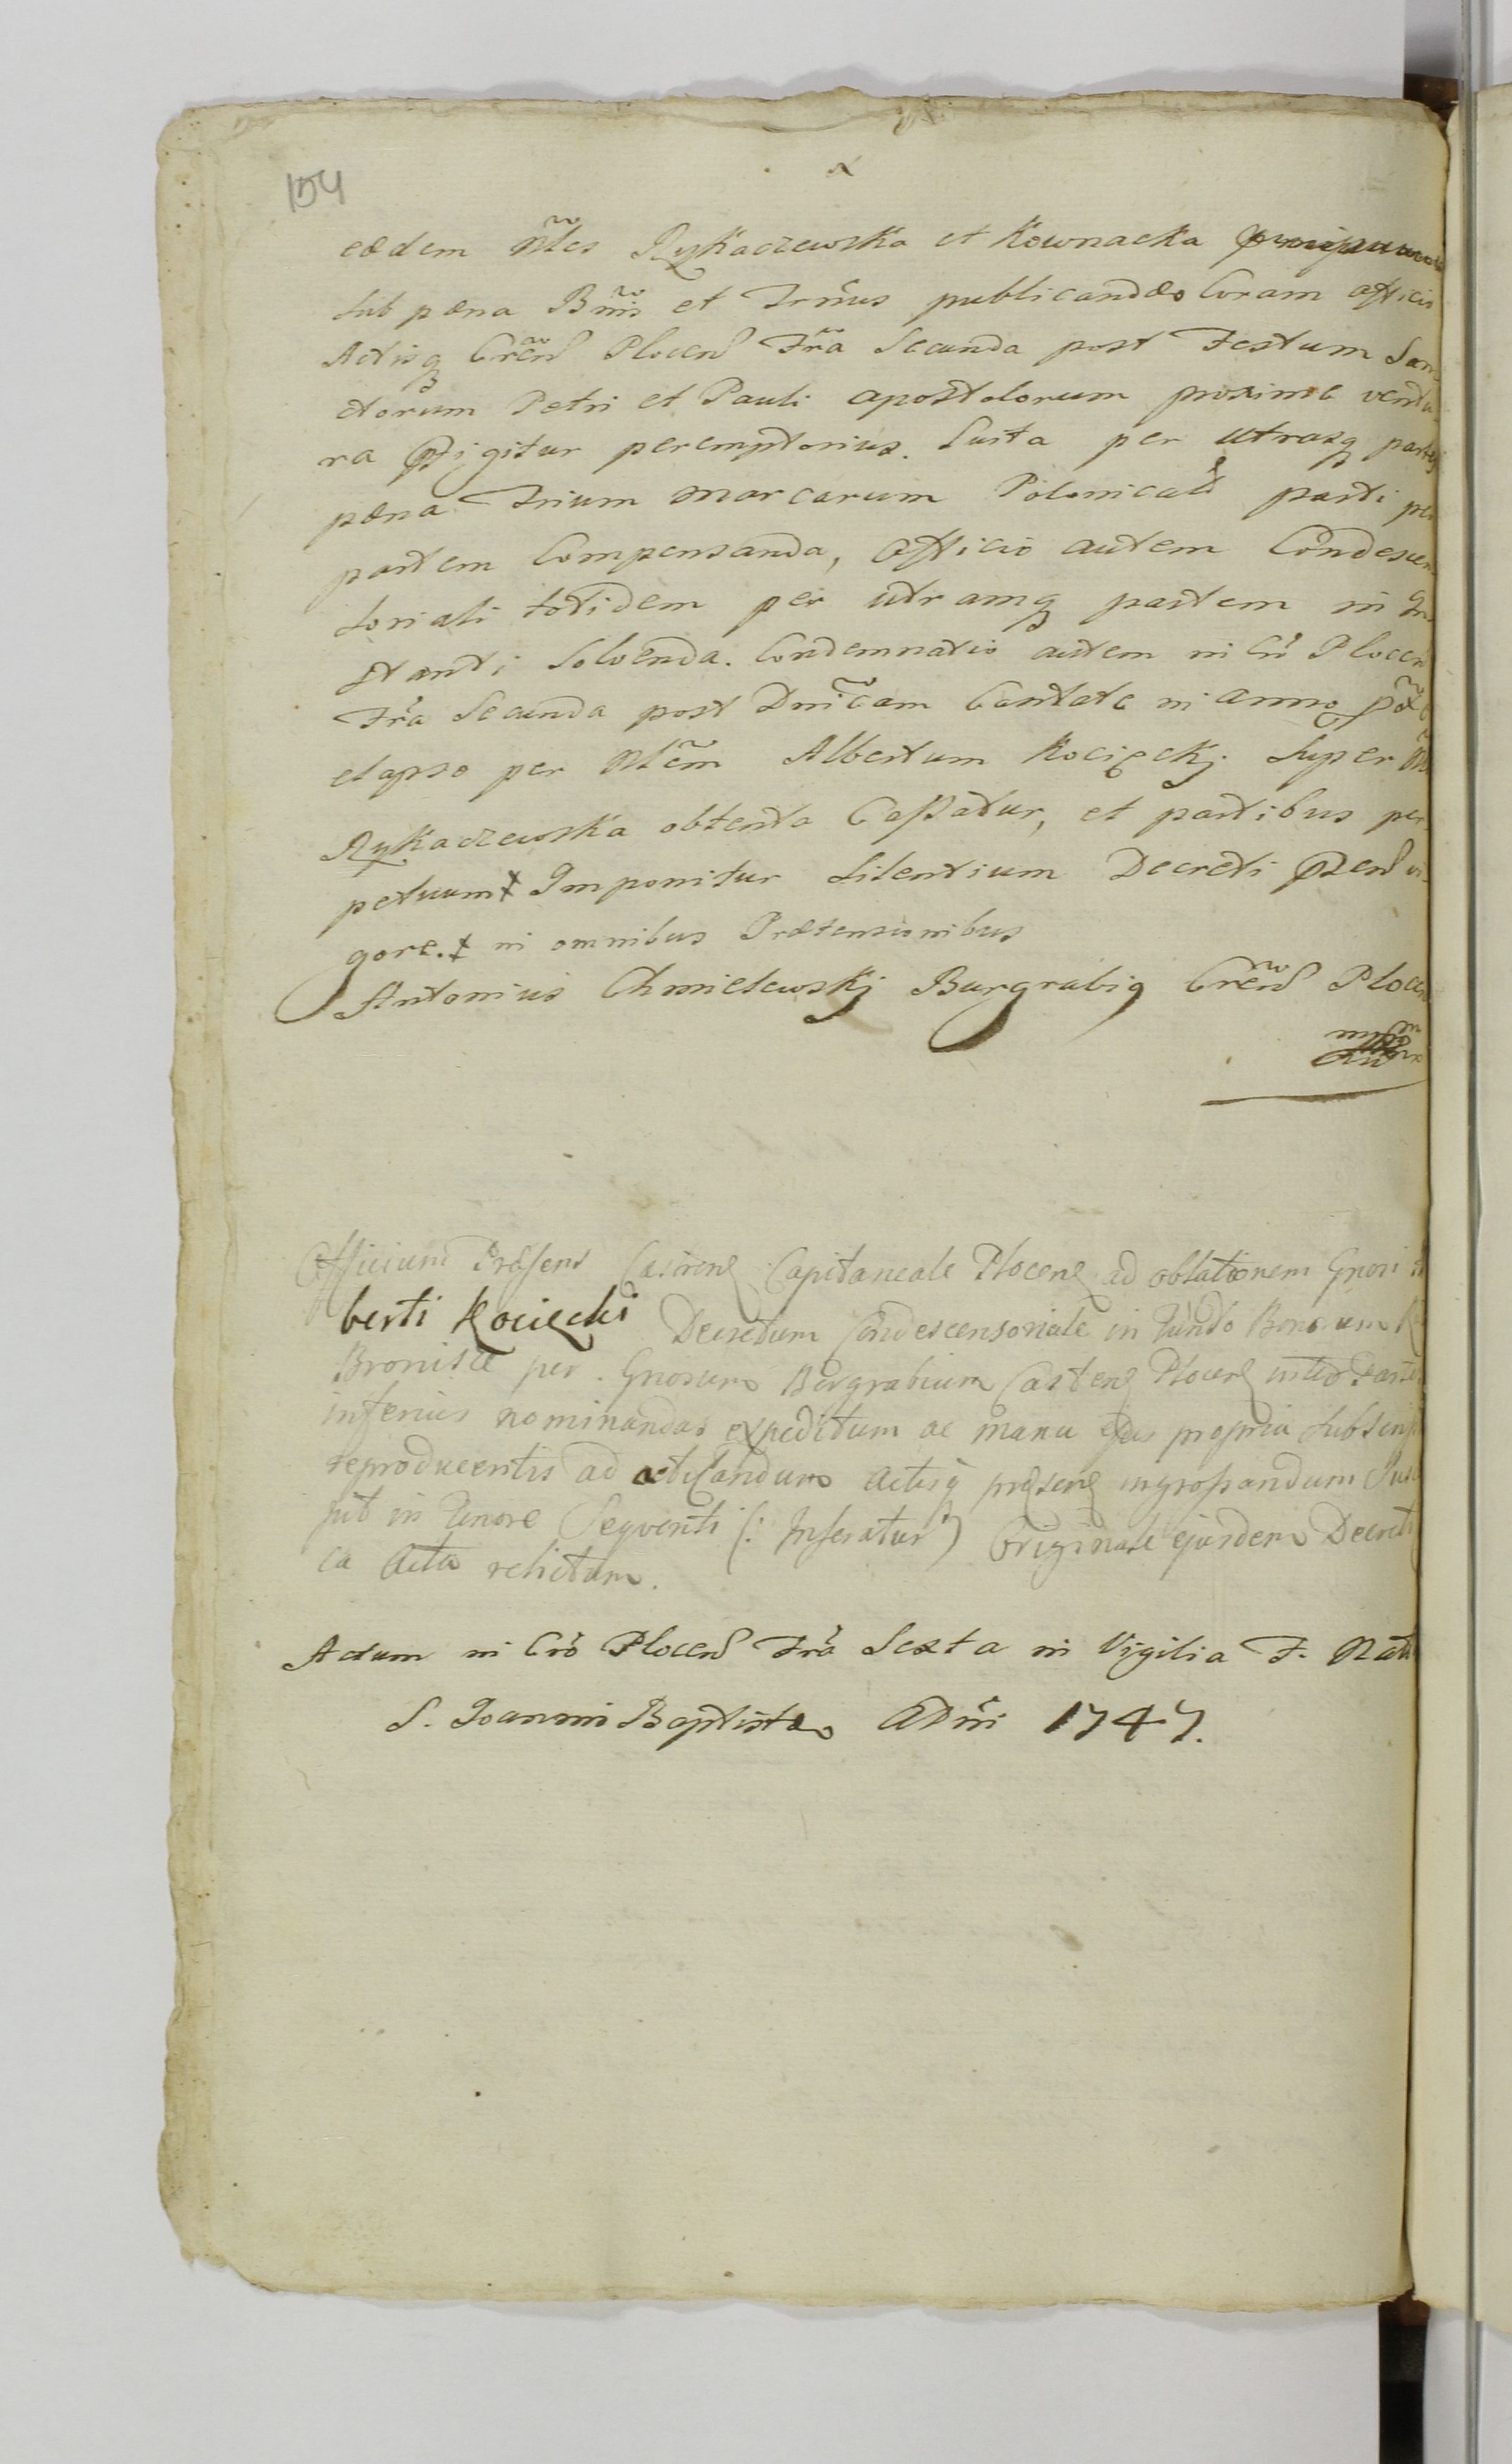 154
eædem Nles Rykaczewska et Kownacka
sub pæna Bnis et Trinus publicandæ Coram officio
Actisq Cren Plocen Fra Secunda post Festum San
ctorum Petri et Pauli apostolorum proxime ventu
ra præfigitur peremptorius. Luita per utrasq partes
pæna Trium marcarum Polonicall parti per
partem Compensanda, officio autem Condescen
soriali totidem per utramq partem in In
stanti Solvenda. Condemnatio autem in Cro Plocen
Fra Secunda post Dnicam Cantate in anno
elapso per Nlem Albertum Kociecki super
Rykaczewska obtenta Cassatur, et partibus per
petuum ‡ Imponitur Silentium Decreti præsen vi
gore. ‡ in omnibus Prætensionibus
Antonius Chmielewskj Burgrabiq Cren Plocen
Officium Præsens Castrens Capitaneale Plocens ad oblationem Gnosi
berti Kociecki Decretum Condescensoriale in Fundo Bonorum
Bronisze per Gnosum Burgrabium Castrens Plocens inter Partes
inferius nominandas expeditum ac manu ejus propria subscrip
reproducentis ad acticandum actisq præsens ingrossandum Sus
pit in tenore Sequenti (: Inseratur :) Originale ejusdem Decreti
ca Acta relictum.
Actum in Cro Plocen Fra Sexta in Vigilia F. Nati
S. Joannis Baptistæ ADni 1747.